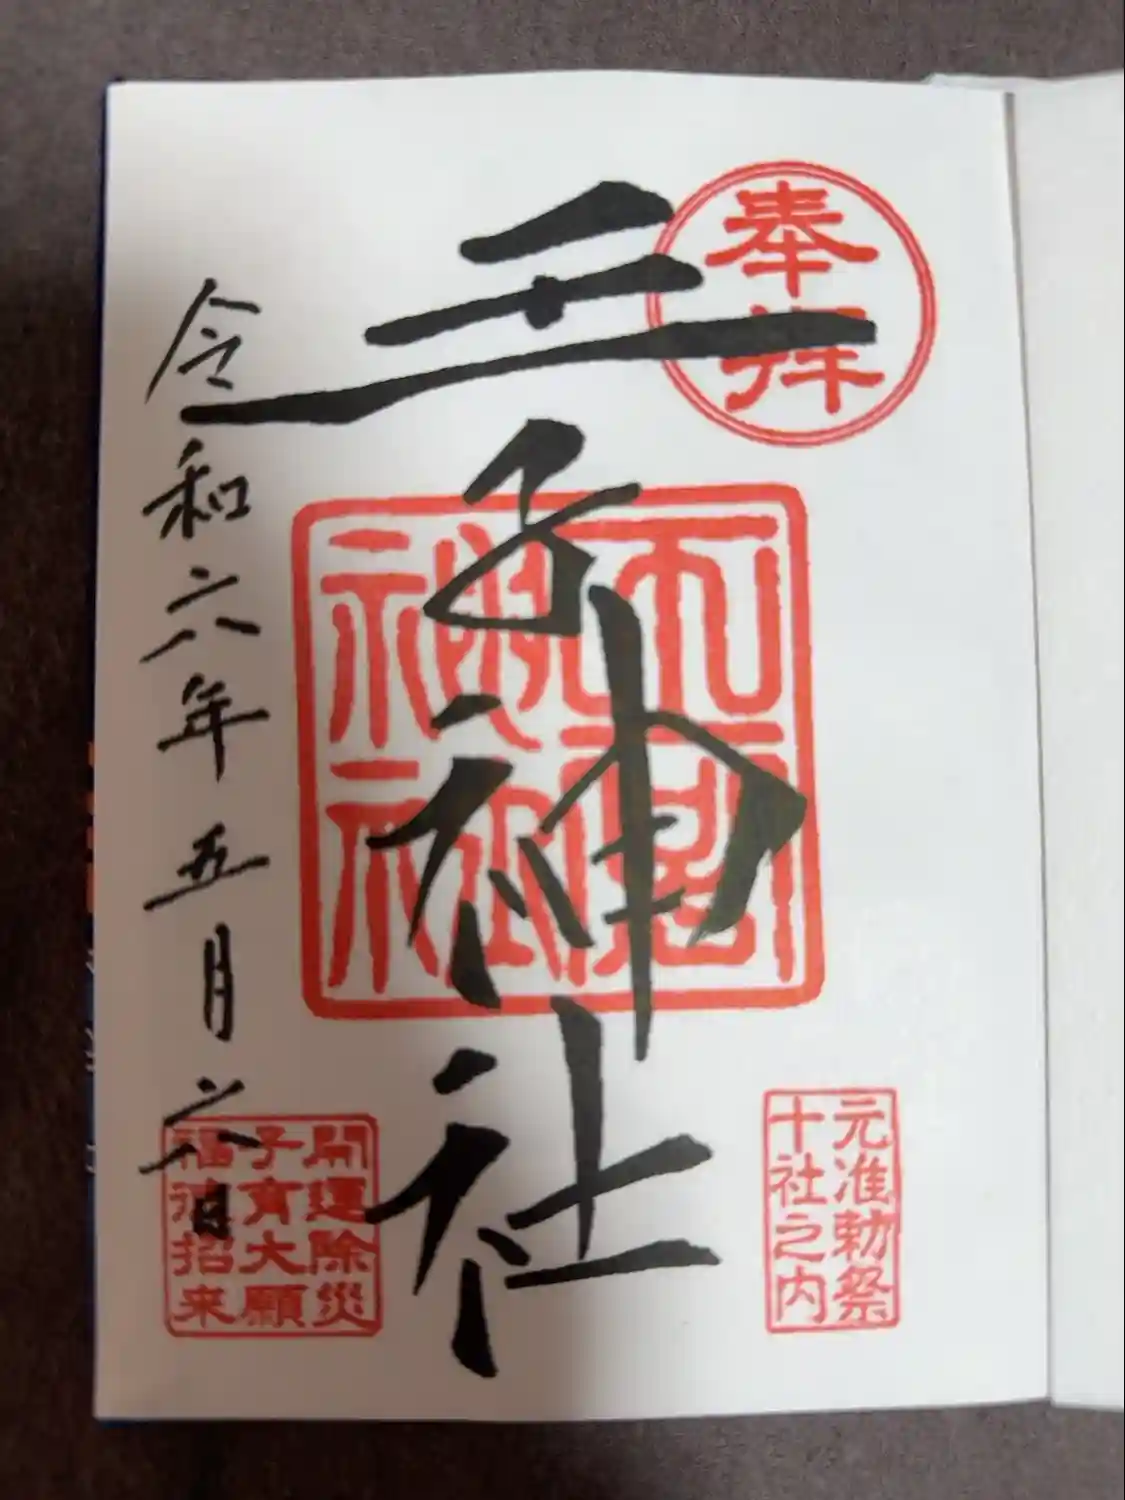 奉拝
元准勅祭
十社之内
王子神社
開運除災
子育大願
福徳招来
令和六年五月六日